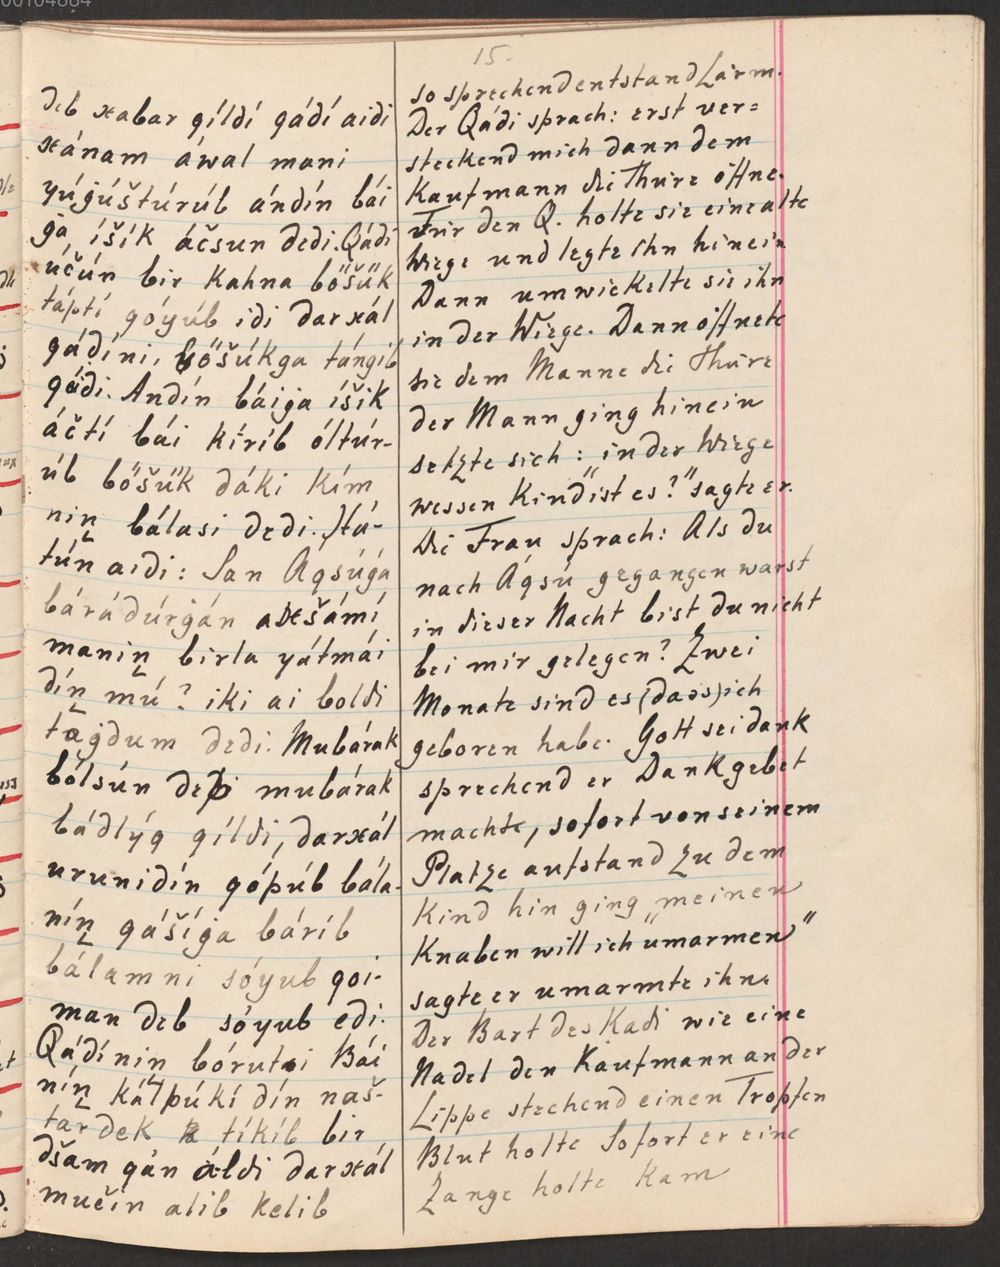 00104884
15.
deb xabar qíldí qádí aidi
xánam áwal mani
yúgúštúrúb ándín bái
ga íšík áčsun dedi. Qádí
účún bir Kahna böšük
táptí góyúb idi darxál
qádíni, böšúkga tángib
qádi. Andín báiga íšík
áčtí bái kíríb óltúr-
úb böšük dáki kím
nin bálasi dedi. Há-
tún aidi: San Aqsúgá
bárádúrgán axšámí
manin birla yátmái
dín mú? iki ai boldi
tagdum dedi. Mubárak
bólsún dep mubárak
bádlýq qíldi, darxál
urunidín qópúb bála-
nín qášíga báríb
bálamni sóyub qoi-
man deb sóyub edi.
Qádínin bórutı Bái
nín kálpúkí dín naš-
tardek tíkíb bir
dšam qán áldi darxál
mučin alib kelib
so sprechend entstand Lärm.
Der Qádi sprach: erst ver=
steckend mich dann dem
Kaufmann die Thüre öffne.
Für den Q. holte sie eine alte
Wiege und legte ihn hinein
Dann umwickelte sie ihn
in der Wiege. Dann öffnete
sie dem Manne die Thüre
der Mann ging hinein
setzte sich: in der Wiege
wessen Kind "ist es?" sagte er.
Die Frau sprach: Als du
nach Áqsú gegangen warst
in dieser Nacht bist du nicht
bei mir gelegen? Zwei
Monate sind es (dass) ich
geboren habe. Gott sei dank
sprechend er Dankgebet
machte, sofort von seinem
Platze aufstand zu dem
Kind hin ging „meinen
Knaben will ich umarmen"
sagte er umarmte ihn.
Der Bart des Kadi wie eine
Nadel den Kaufmann an der
Lippe stechend einen Tropfen
Blut holte Sofort er eine
Zange holte kam